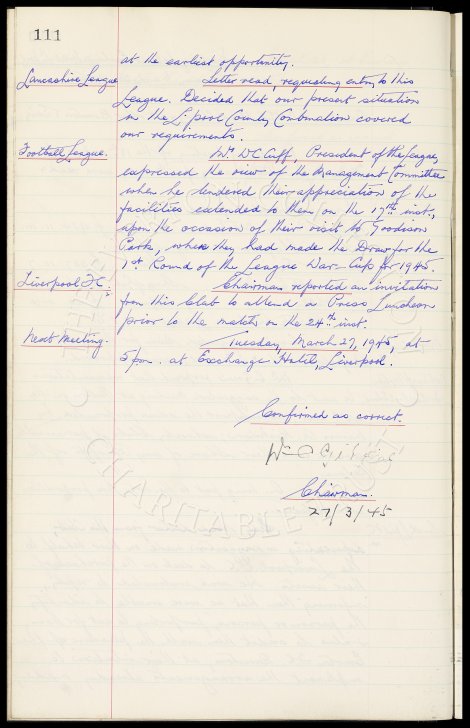 111
at the earliest opportunity.
Lancashire League
Letter read, requesting entry to this
League. Decided that our present situation
in the L'pool County Combination covered
our requirements.
Football League.
Mr. W C Cuff, President of the League,
expressed the view of the Management Committee
when he tendered their appreciation of the
facilities extended to them on the 17th inst.,
upon the occasion of their visit to Goodison
Park, where they had made the Draw for the
1st Round of the League War-Cup for 1945.
Liverpool F.C.
Chairman reported an invitation
from this Club to attend a Press Luncheon
prior to the match on the 24th inst.
Next Meeting.
Tuesday, March 27, 1945, at
5 pm. at Exchange Hotel, Liverpool.
Confirmed as correct.
Chairman.
27/3/45
CHARITABLE TRUST